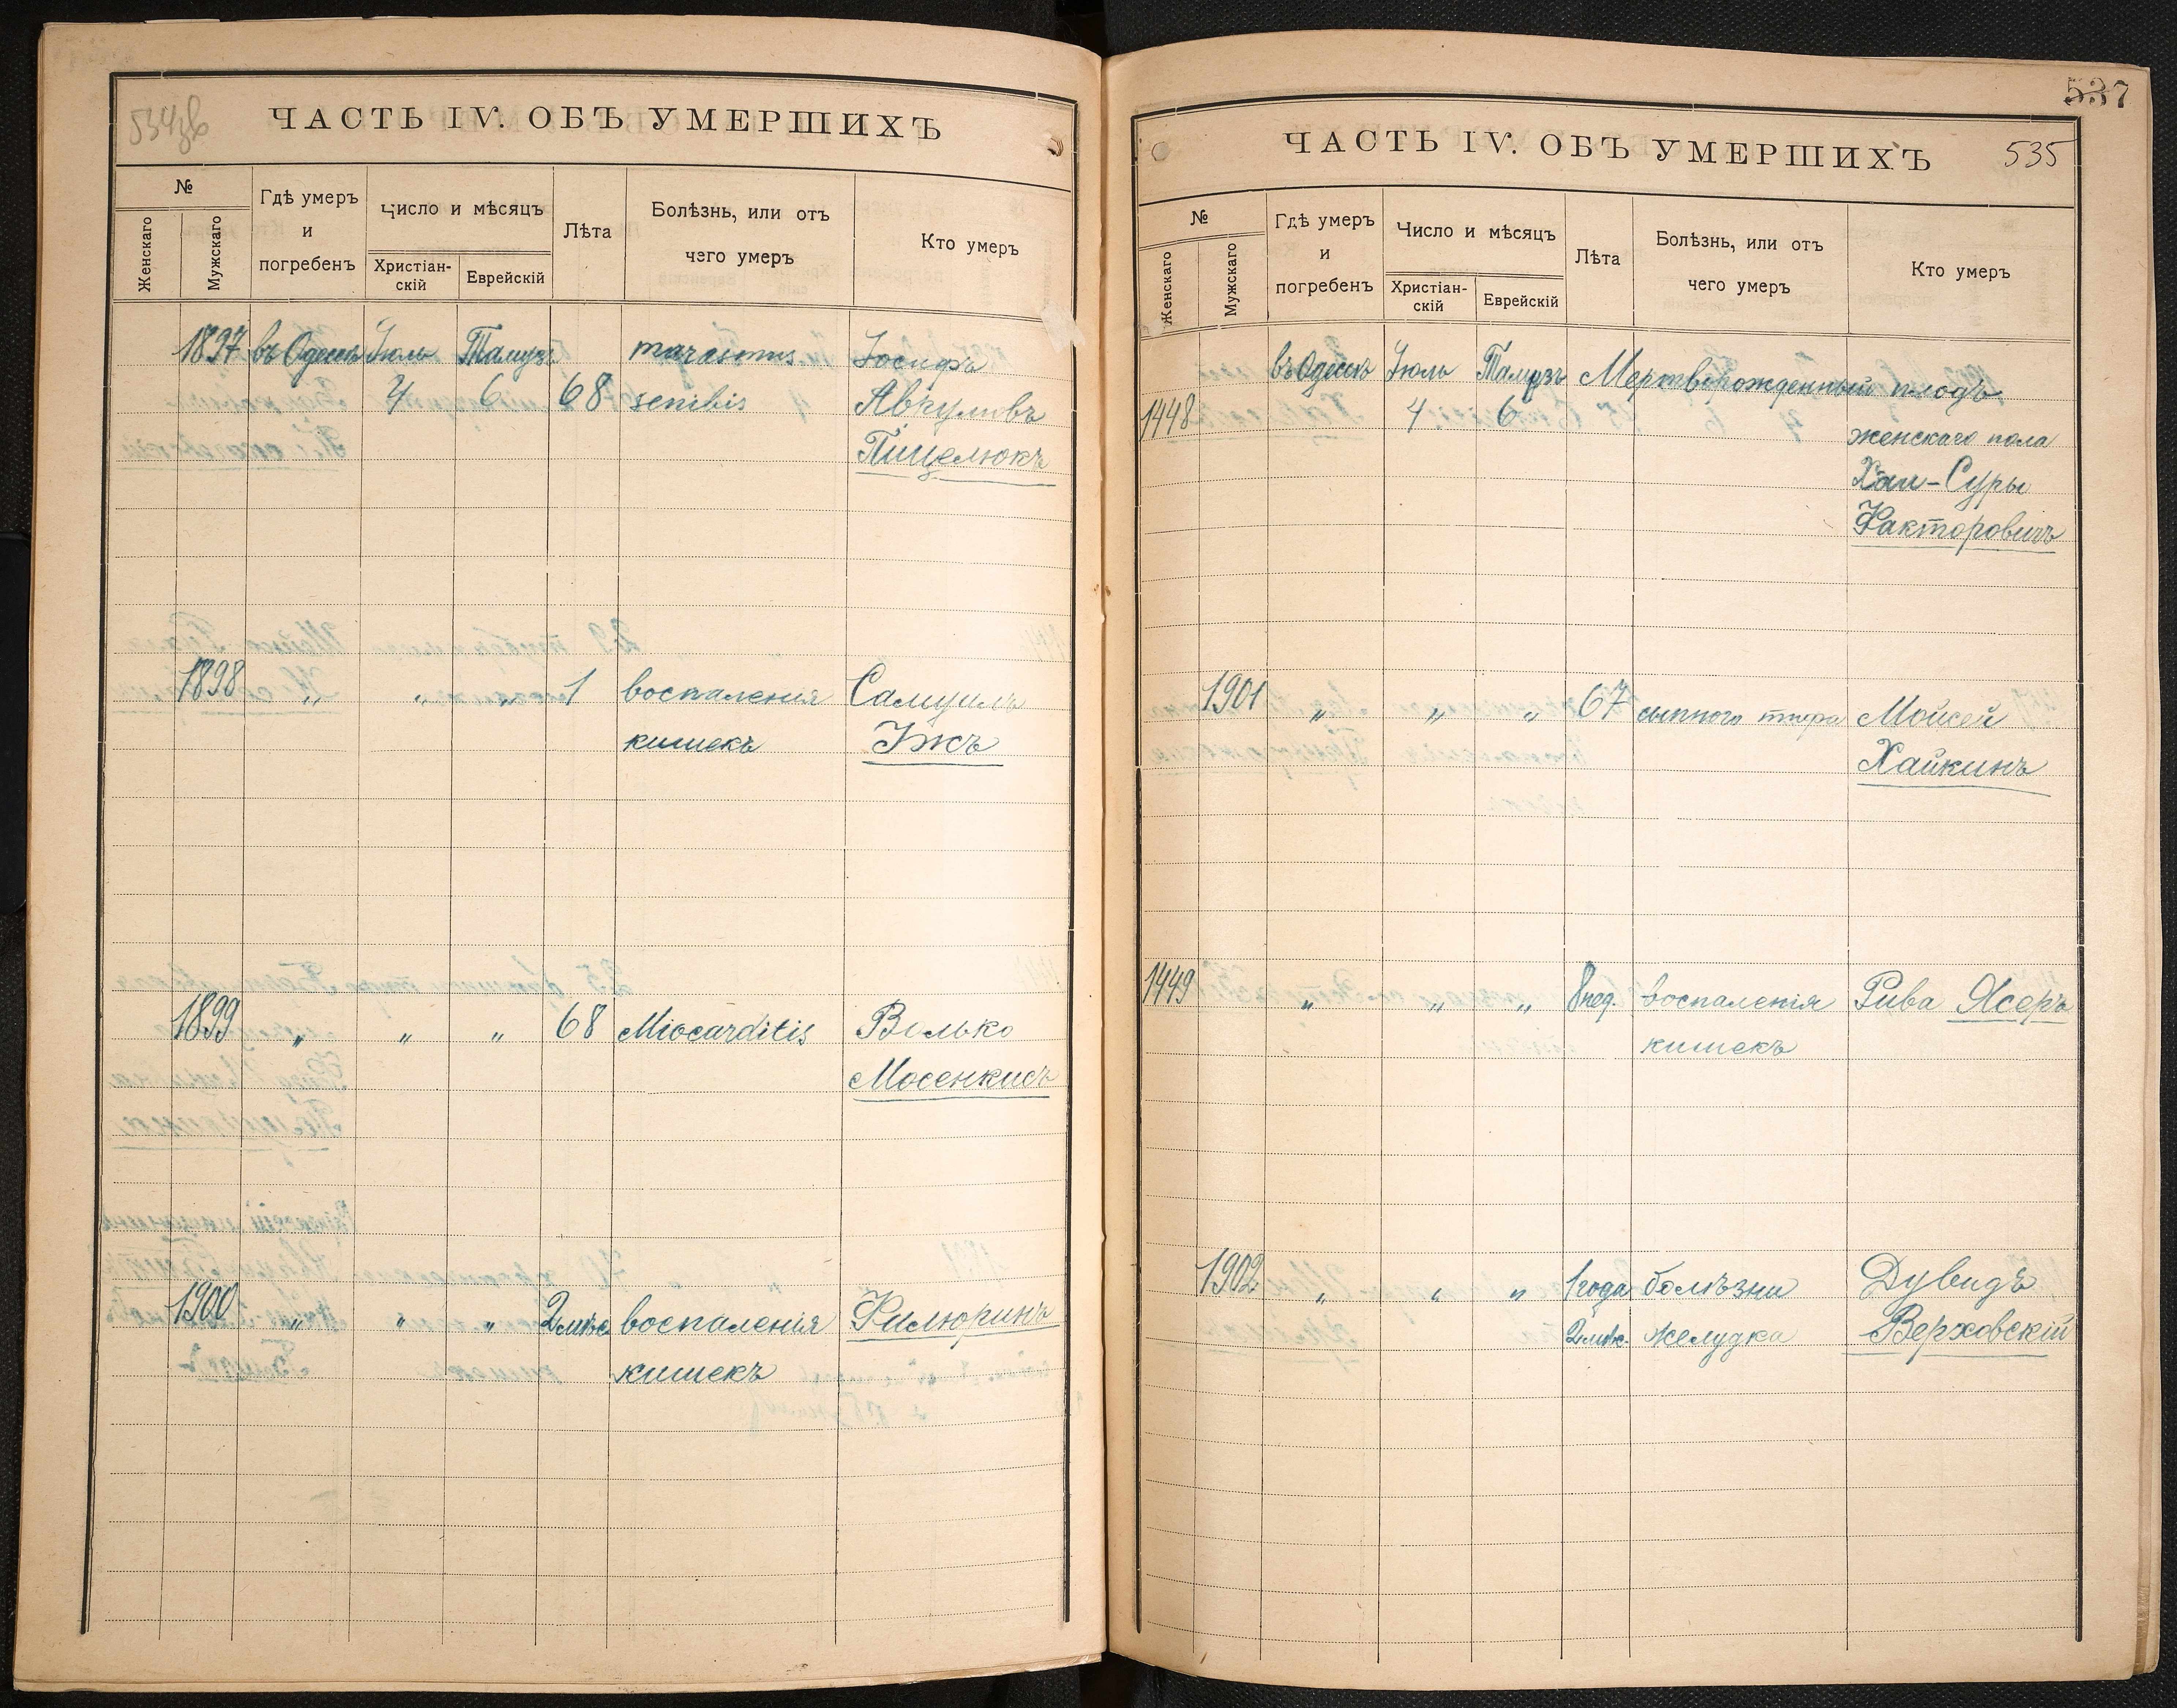 534 об
ЧАСТЬ IV. ОБЪ УМЕРШИХЪ
№
Женскаго
Мужскаго
Гдѣ умеръ
и
погребенъ
Число и мѣсяцъ
Христіан-
скій
Еврейскій
Лѣта
Болѣзнь, или отъ
чего умеръ
Кто умеръ
1897 въ Одессѣ Іюль Тамузъ marasmus Іосифъ
4 6 68 senilis
Пицелюкъ
1898 „ „ „ 1 воспаленія Самуилъ
кишекъ Ижъ
1899 „ „ „ 68 Miocarditis Волько
Мосенкисъ
1900 „ „ „ 2 мѣс. воспаленія Филюринъ
кишекъ
537
ЧАСТЬ IV. ОБЪ УМЕРШИХЪ 535
№
Женскаго
Мужскаго
Гдѣ умеръ
и
погребенъ
Число и мѣсяцъ
Христіан-
скій
Еврейскій
Лѣта
Болѣзнь, или отъ
чего умеръ
Кто умеръ
въ Одессѣ Іюль Тамузъ Мертворожденный плодъ
1448 4 6 женскаго пола
Хаи-Суры
Факторовичъ
1901 „ „ „ 67 сыпного тифа Мойсей
Хайкинъ
1449 „ „ „ 8 нед. воспаленія Рива Ясеръ
кишекъ
1902 „ „ „ 1 года болѣзни Дувидъ
2 мѣс. желудка Верховскій